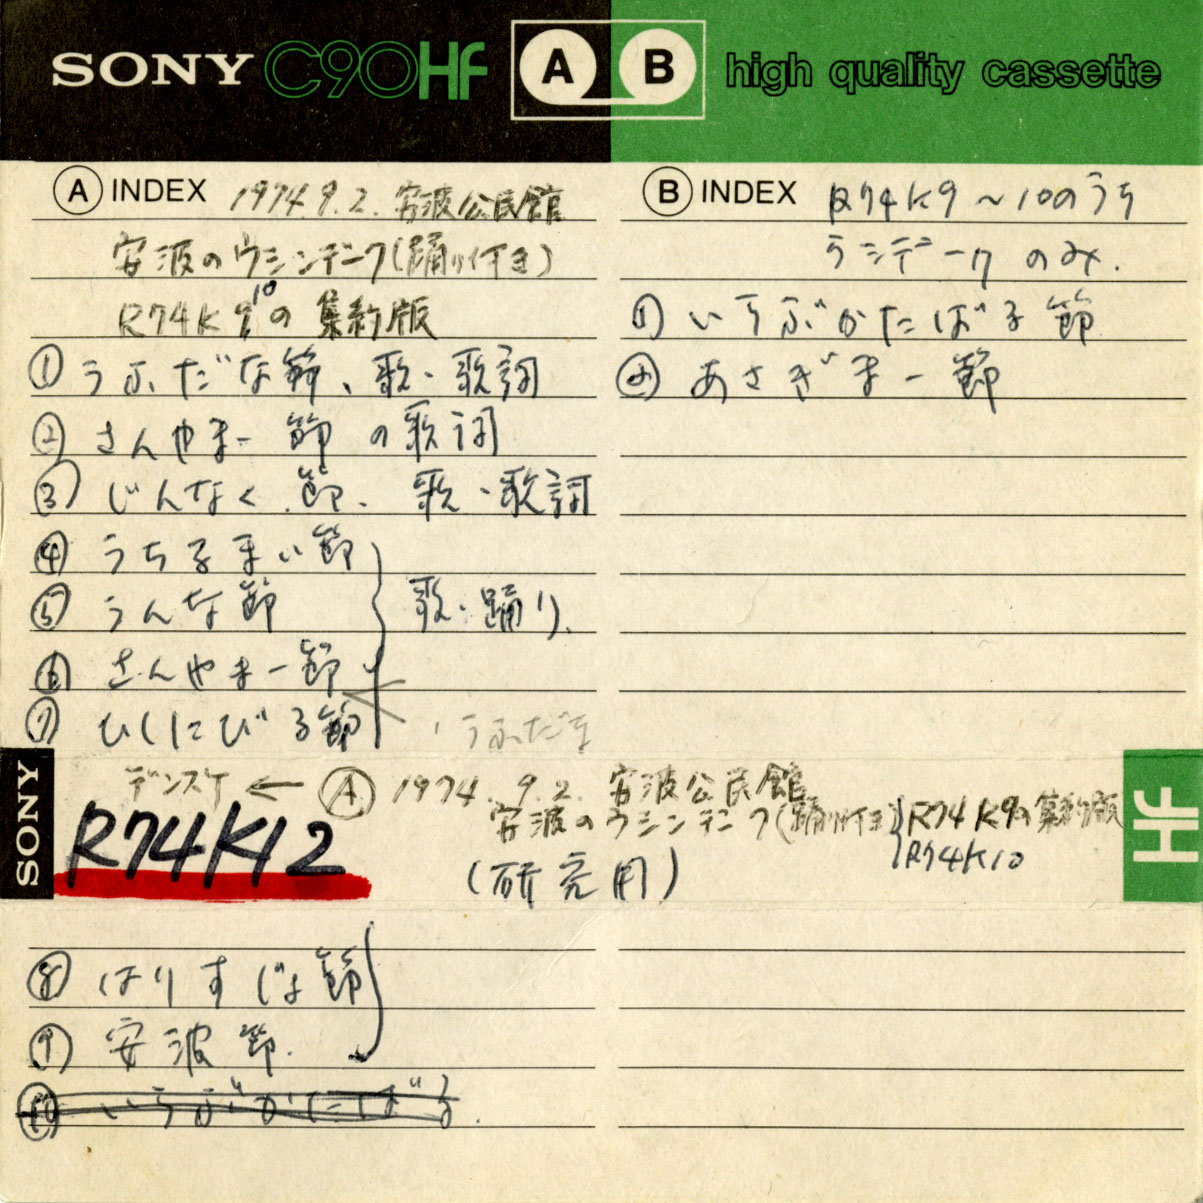 SONY C90HF A B high quality cassette
A INDEX 1974.9.2. 安波公民館
安波のウシンデーク(踊り付き)
R74K9 10の集約版
① うふだな節、歌・歌詞
② さんやまー節の歌詞
③ じんなく節、歌・歌詞
④ うちるまい節
⑤ うんな節 歌・踊り、
⑥ さんやまー節
⑦ ひしにびる節 うふだな
B INDEX R74K9〜10のうち
ウシデークのみ.
① いらぶかたばる節
② あさぎまー節
SONY
デンスケ ← A 1974.9.2. 安波公民館
安波のウシンデーク(踊り付き) R74K9の集約版
R74K10
R74K12
(研究用)
HF
⑧ はりすじよ節
⑨ 安波節.
⑩ いらぶかたばる.